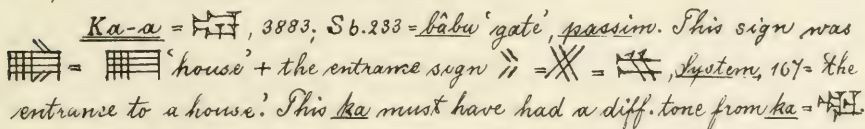 Ka-a = 𒆍, 3883; Sb. 233 = bâbu 'gate', passim. This sign was
= 'house' + the entrance sign = = , System, 167 = the
entrance to a house.' This ka must have had a diff. tone from ka =